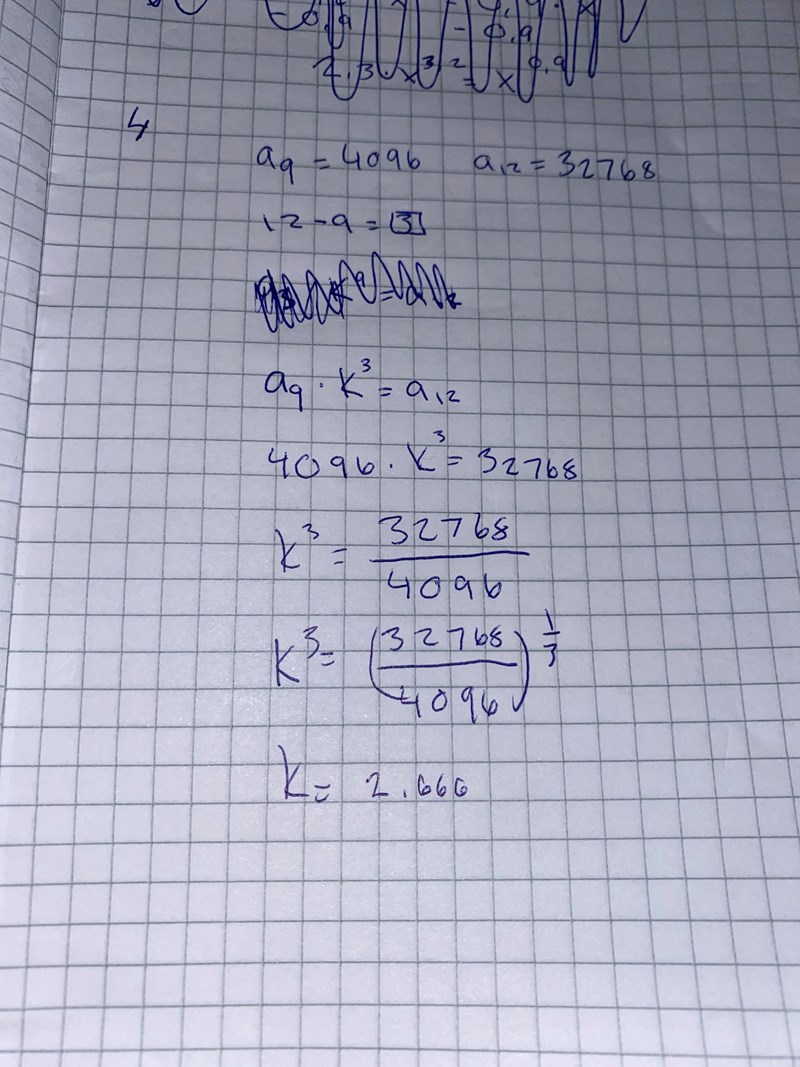 4
a₉ = 4096 a₁₂ = 32768
12 - 9 = 3
a₉ · K³ = a₁₂
4096 · K³ = 32768
K³ = 32768/4096
K³ = (32768/4096)^(1/3)
K = 2.666